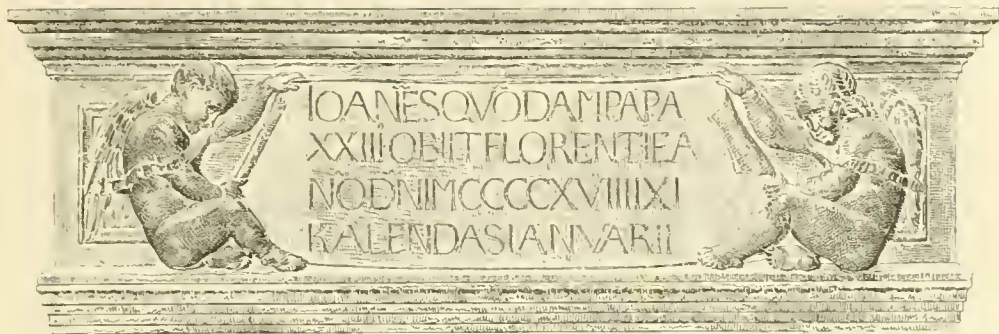 IOANĒSQVŌDAMPAPA
XXIIIOBIITFLORENTIEA
NŌDN̄IMCCCCXVIIIIXI
KALENDASIANVARII